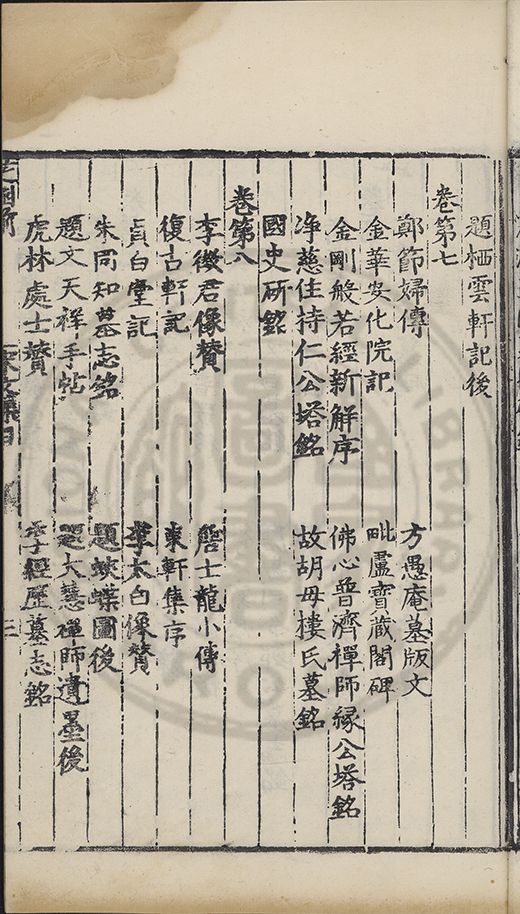 題栖雲軒記後
卷第七
鄭節婦傳 方愚庵墓版文
金華安化院記 毗盧寶藏閣碑
金剛般若經新解序 佛心普濟禪師緣公塔銘
淨慈住持仁公塔銘 故胡母樓氏墓銘
國史研銘
卷第八
李徵君像贊 詹士龍小傳
復古軒記 東軒集序
貞白堂記 李太白像贊
朱同知墓志銘 題蛺蝶圖後
題文天祥手帖 題大慧禪師遺墨後
虎林處士贊 李經歷墓志銘
三